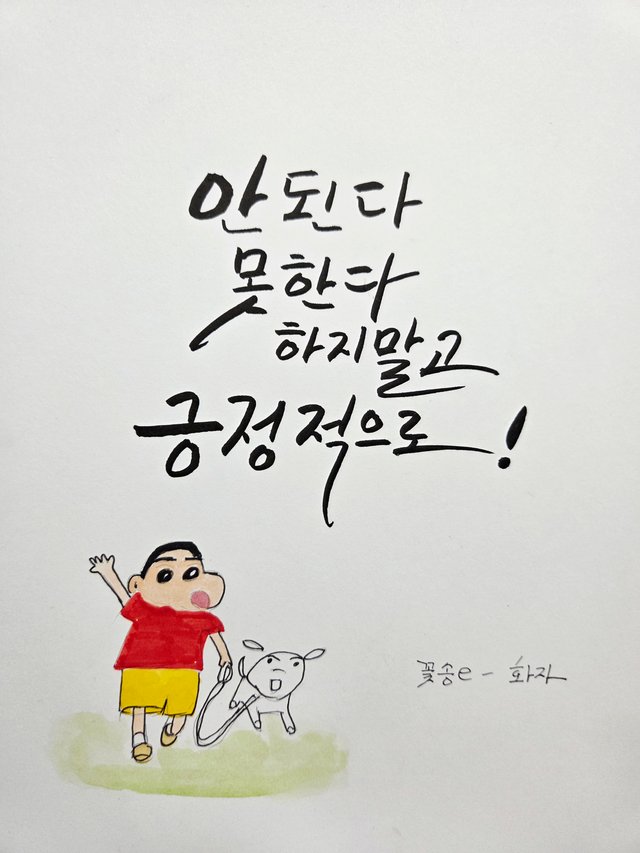 안된다
못한다
하지말고
긍정적으로!
꽃송e - 화자